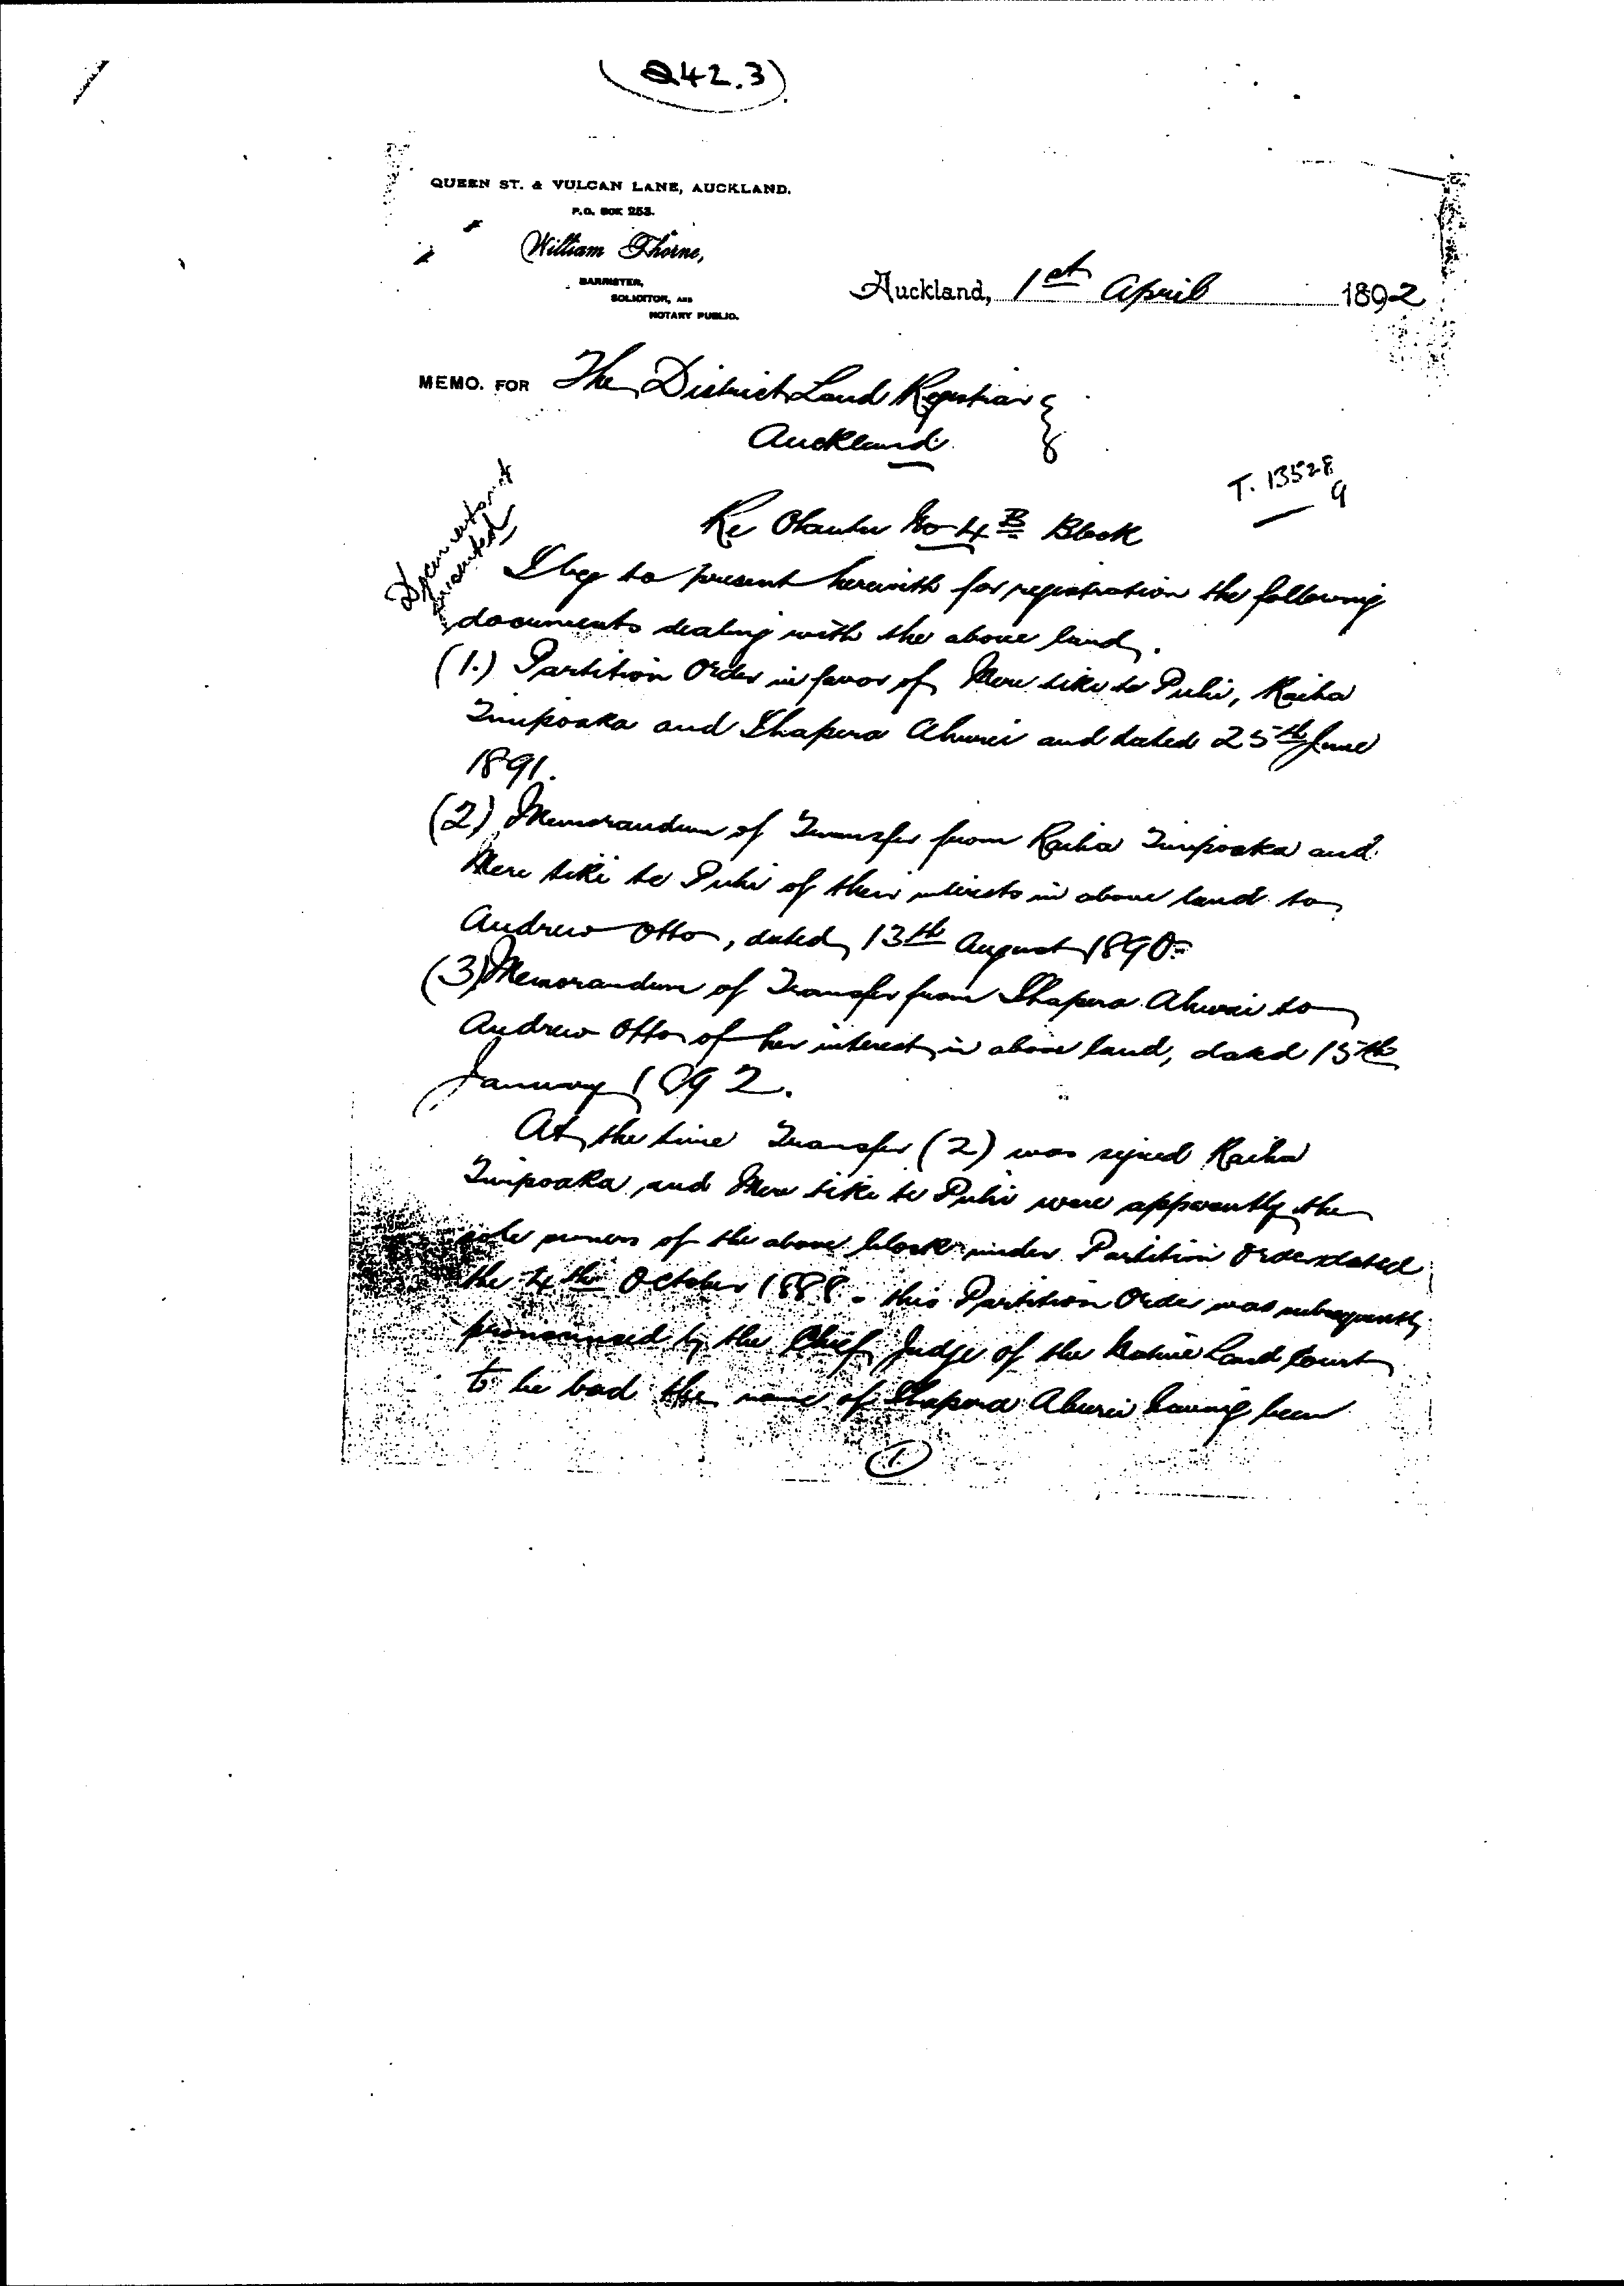 (242.3)
QUEEN ST. & VULCAN LANE, AUCKLAND.
P.O. BOX 253.
William Thorne,
BARRISTER,
SOLICITOR, AND
NOTARY PUBLIC.
Auckland, 1st April 1892
MEMO. FOR The District Land Registrar
Auckland.
T. 13528
9
Re No 4B Block
Documents
presented
I beg to present herewith for registration the following
documents dealing with the above land.
(1.) Partition Order in favor of Mere tiki te Puhi, Raiha
and Ihapera Ahurei and dated 25th June
1891.
(2) Memorandum of Transfer from Raiha and
Mere tiki te Puhi of their interests in above land to
Andrew Otto, dated 13th August 1890.
(3) Memorandum of Transfer from Ihapera Ahurei to
Andrew Otto of her interest in above land, dated 15th
January 1892.
At the time Transfer (2) was signed Raiha
and Mere tiki te Puhi were apparently the
sole owners of the above block under Partition Order dated
the 4th October 1888 - this Partition Order was subsequently
pronounced by the Chief Judge of the Native Land Court
to be bad the name of Ihapera Ahurei having been
1